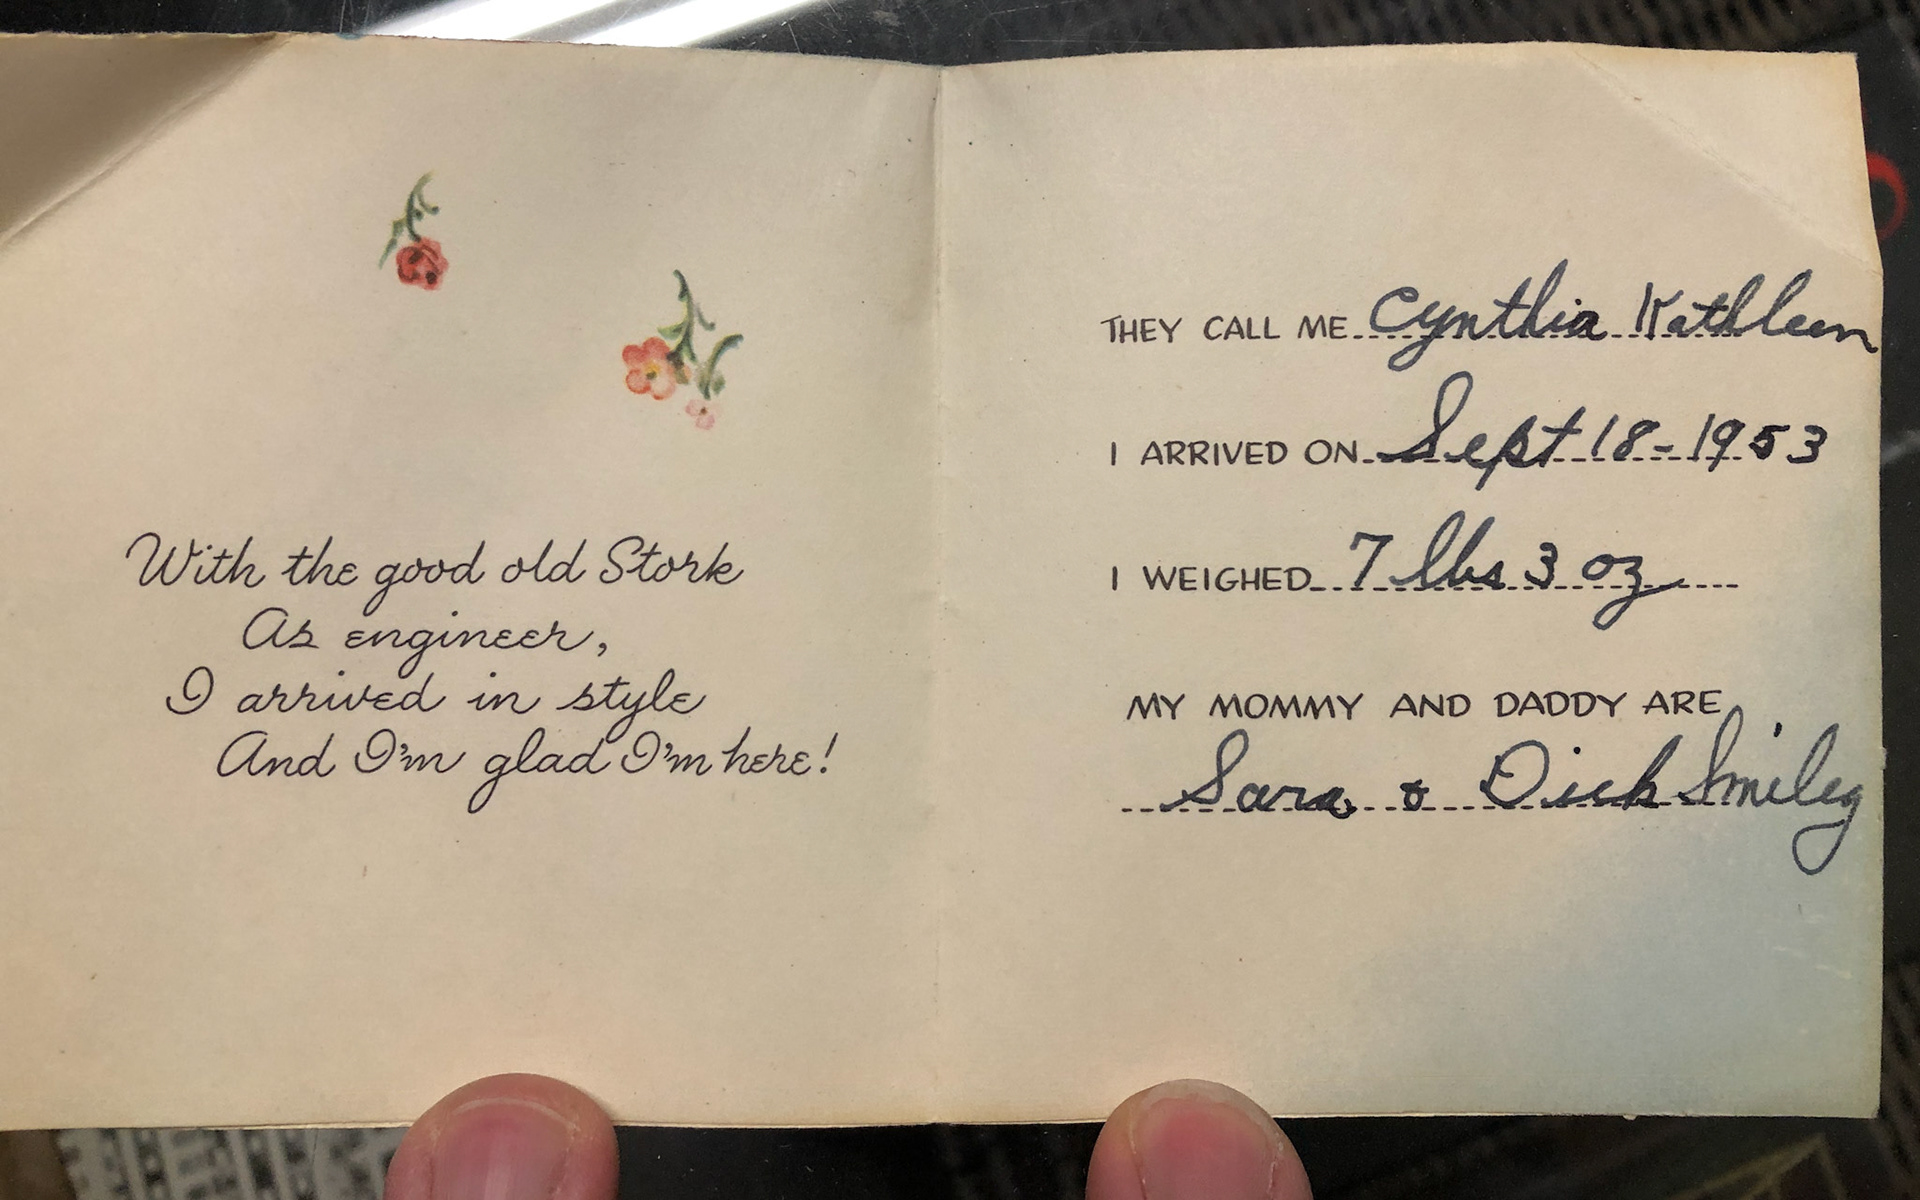 With the good old Stork
As engineer,
I arrived in style
And I'm glad I'm here!
THEY CALL ME Cynthia Kathleen
I ARRIVED ON Sept 18-1953
I WEIGHED 7 lbs 3 oz
MY MOMMY AND DADDY ARE
Sara & Dick Smiley